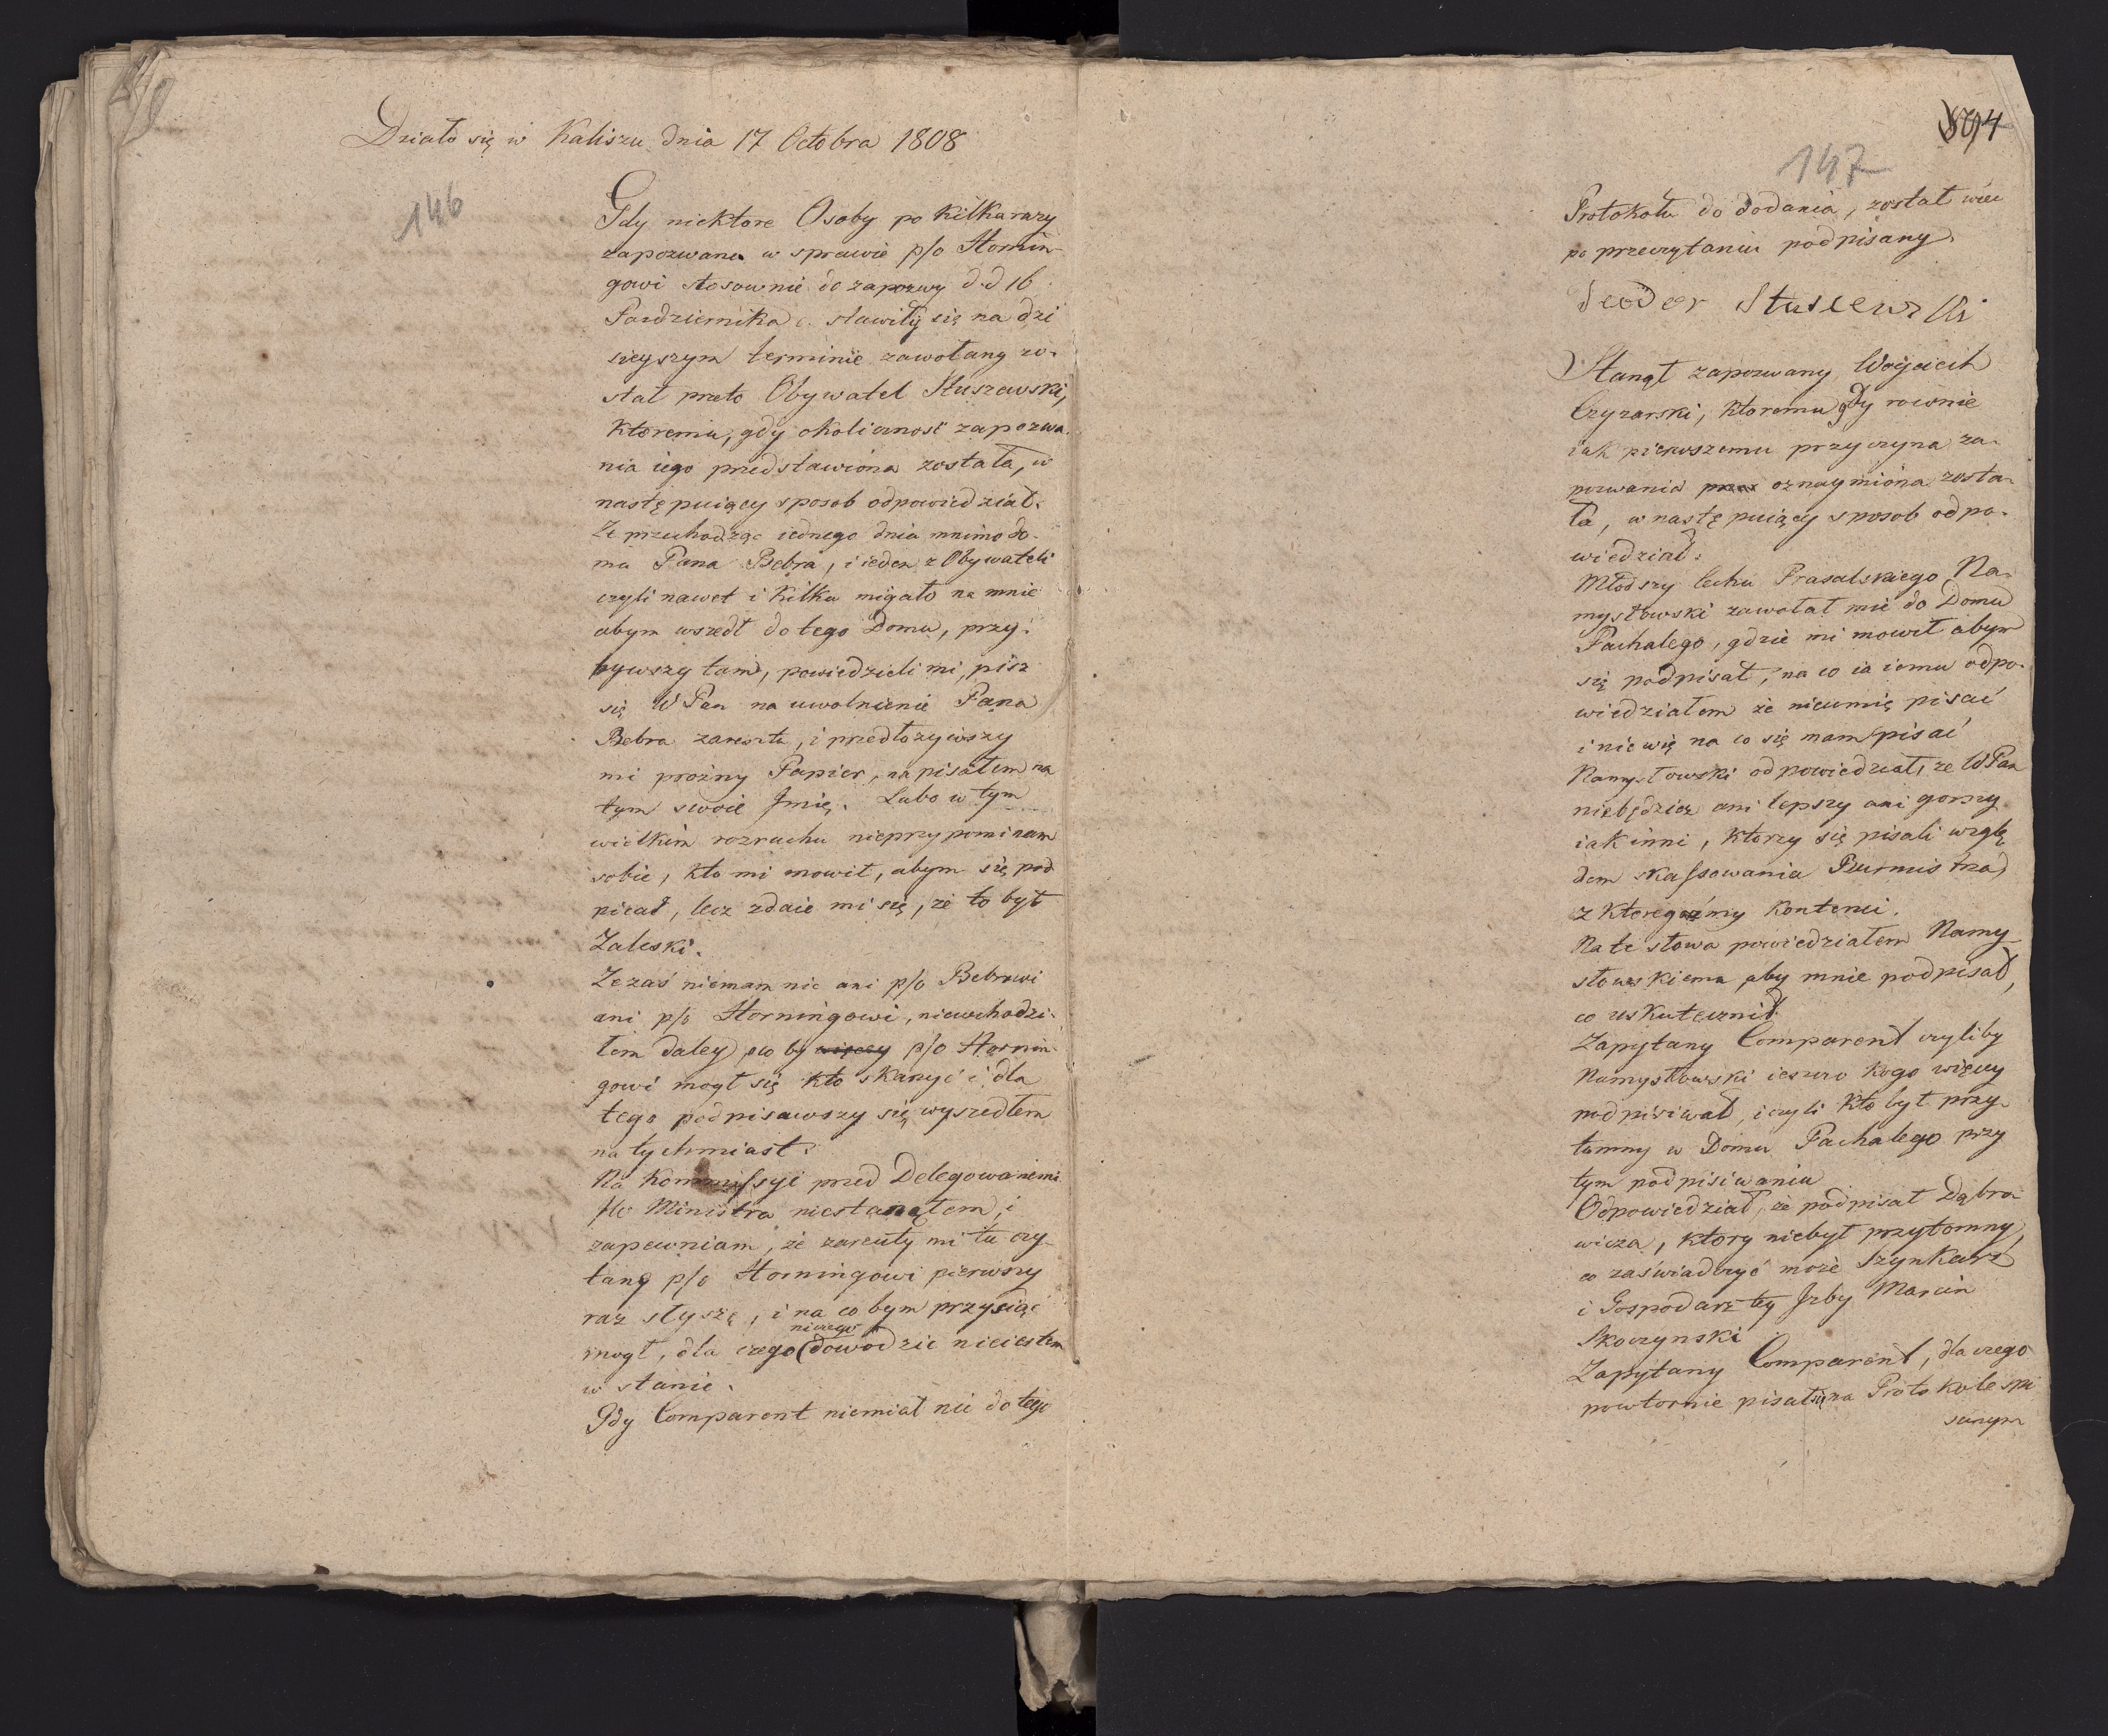 Działo się w Kaliszu dnia 17 Octobra 1808
146
Gdy niektore Osoby po kilka razy
zapozwane w sprawie p/o Hornin-
gowi stosownie do zapozwy d.d 16
Pazdziernika c. stawiły się na dzi
sieyszym terminie zawołany zo-
stał przeto Obywatel Stuszewski,
ktoremu, gdy okoliczność zapozwa-
nia iego przedstawiona została, w
następuiący sposob odpowiedział.
Ze przechodząc iednego dnia mnimo do-
mu Pana Bebra, i ieden z Obywateli
czyli nawet i kilku migało na mnie
abym wszedł do tego Domu, przy-
bywszy tam, powiedzieli mi, pisz
się WPan na uwolnienie Pana
Bebra zaresztu, i przedłożywszy
mi prożny Papier, napisałem na
tym swoie Jmię. Lubo w tym
wielkim rozruchu nieprzypominam
sobie, kto mi mowił, abym się pod
pisał, lecz zdaie mi się, że to był
Zaleski.
Ze zaś niemam nic ani p/o Bebrowi
ani p/o Horningowi, niewchodzi-
łem daley, coby więcey p/o Hornin-
gowi mogł się kto skarzyć i dla
tego podpisawszy się wyszedłem
natychmiast.
Na Kommissyi przed Delegowanemi
JW Ministra niestanąłem, i
zapewniam, że zarzuty mi tu czy-
tane p/o Horningowi pierwszy
raz słyszę, i na co bym przysiąc
niczego
mogł, dla czego dowodzić nieiestem
w stanie.
Gdy Comparent niemiał nic do tego
147
Protokołu do dodania, został więc
po przeczytaniu podpisany.
Teodor Stuscewski
Stanął zapozwany Woyciech
Czyzarski, ktoremu gdy rownie
iak pierwszemu przyczyna za-
pozwania oznaymiona zosta-
ła, w następuiący sposob odpo-
wiedział.
Młodszy Cechu Prasalskiego Na-
mysłowski zawołał mie do Domu
Pachalego, gdzie mi mowił abym
się podpisał, na co ia iemu odpo-
wiedziałem że nieumię pisać
i nie wię na co się mam pisać
Namysłowski odpowiedział, ze WPan
niebędziesz ani lepszy ani gorszy
iak inni, ktorzy się pisali wzglę
dem skassowania Burmistrza
z ktoregośmy kontenci.
Na te słowa powiedziałem Namy-
słowskiemu aby mnie podpisał,
co uskutecznił.
Zapytany Comparent czyliby
Namysłowski ieszcze kogo więcey
podpisiwał, i czyli kto był przy-
tomny w Domu Pachalego przy
tym podpisiwaniu
Odpowiedział, że podpisał Dąbro-
wicza, ktory niebył przytomny,
co zaświadczyć może Szynkarz
i Gospodarz tey Jzby Marcin
Skoczynski
Zapytany Comparent, dla czego
powtornie pisał się na Protokole spi
sanym